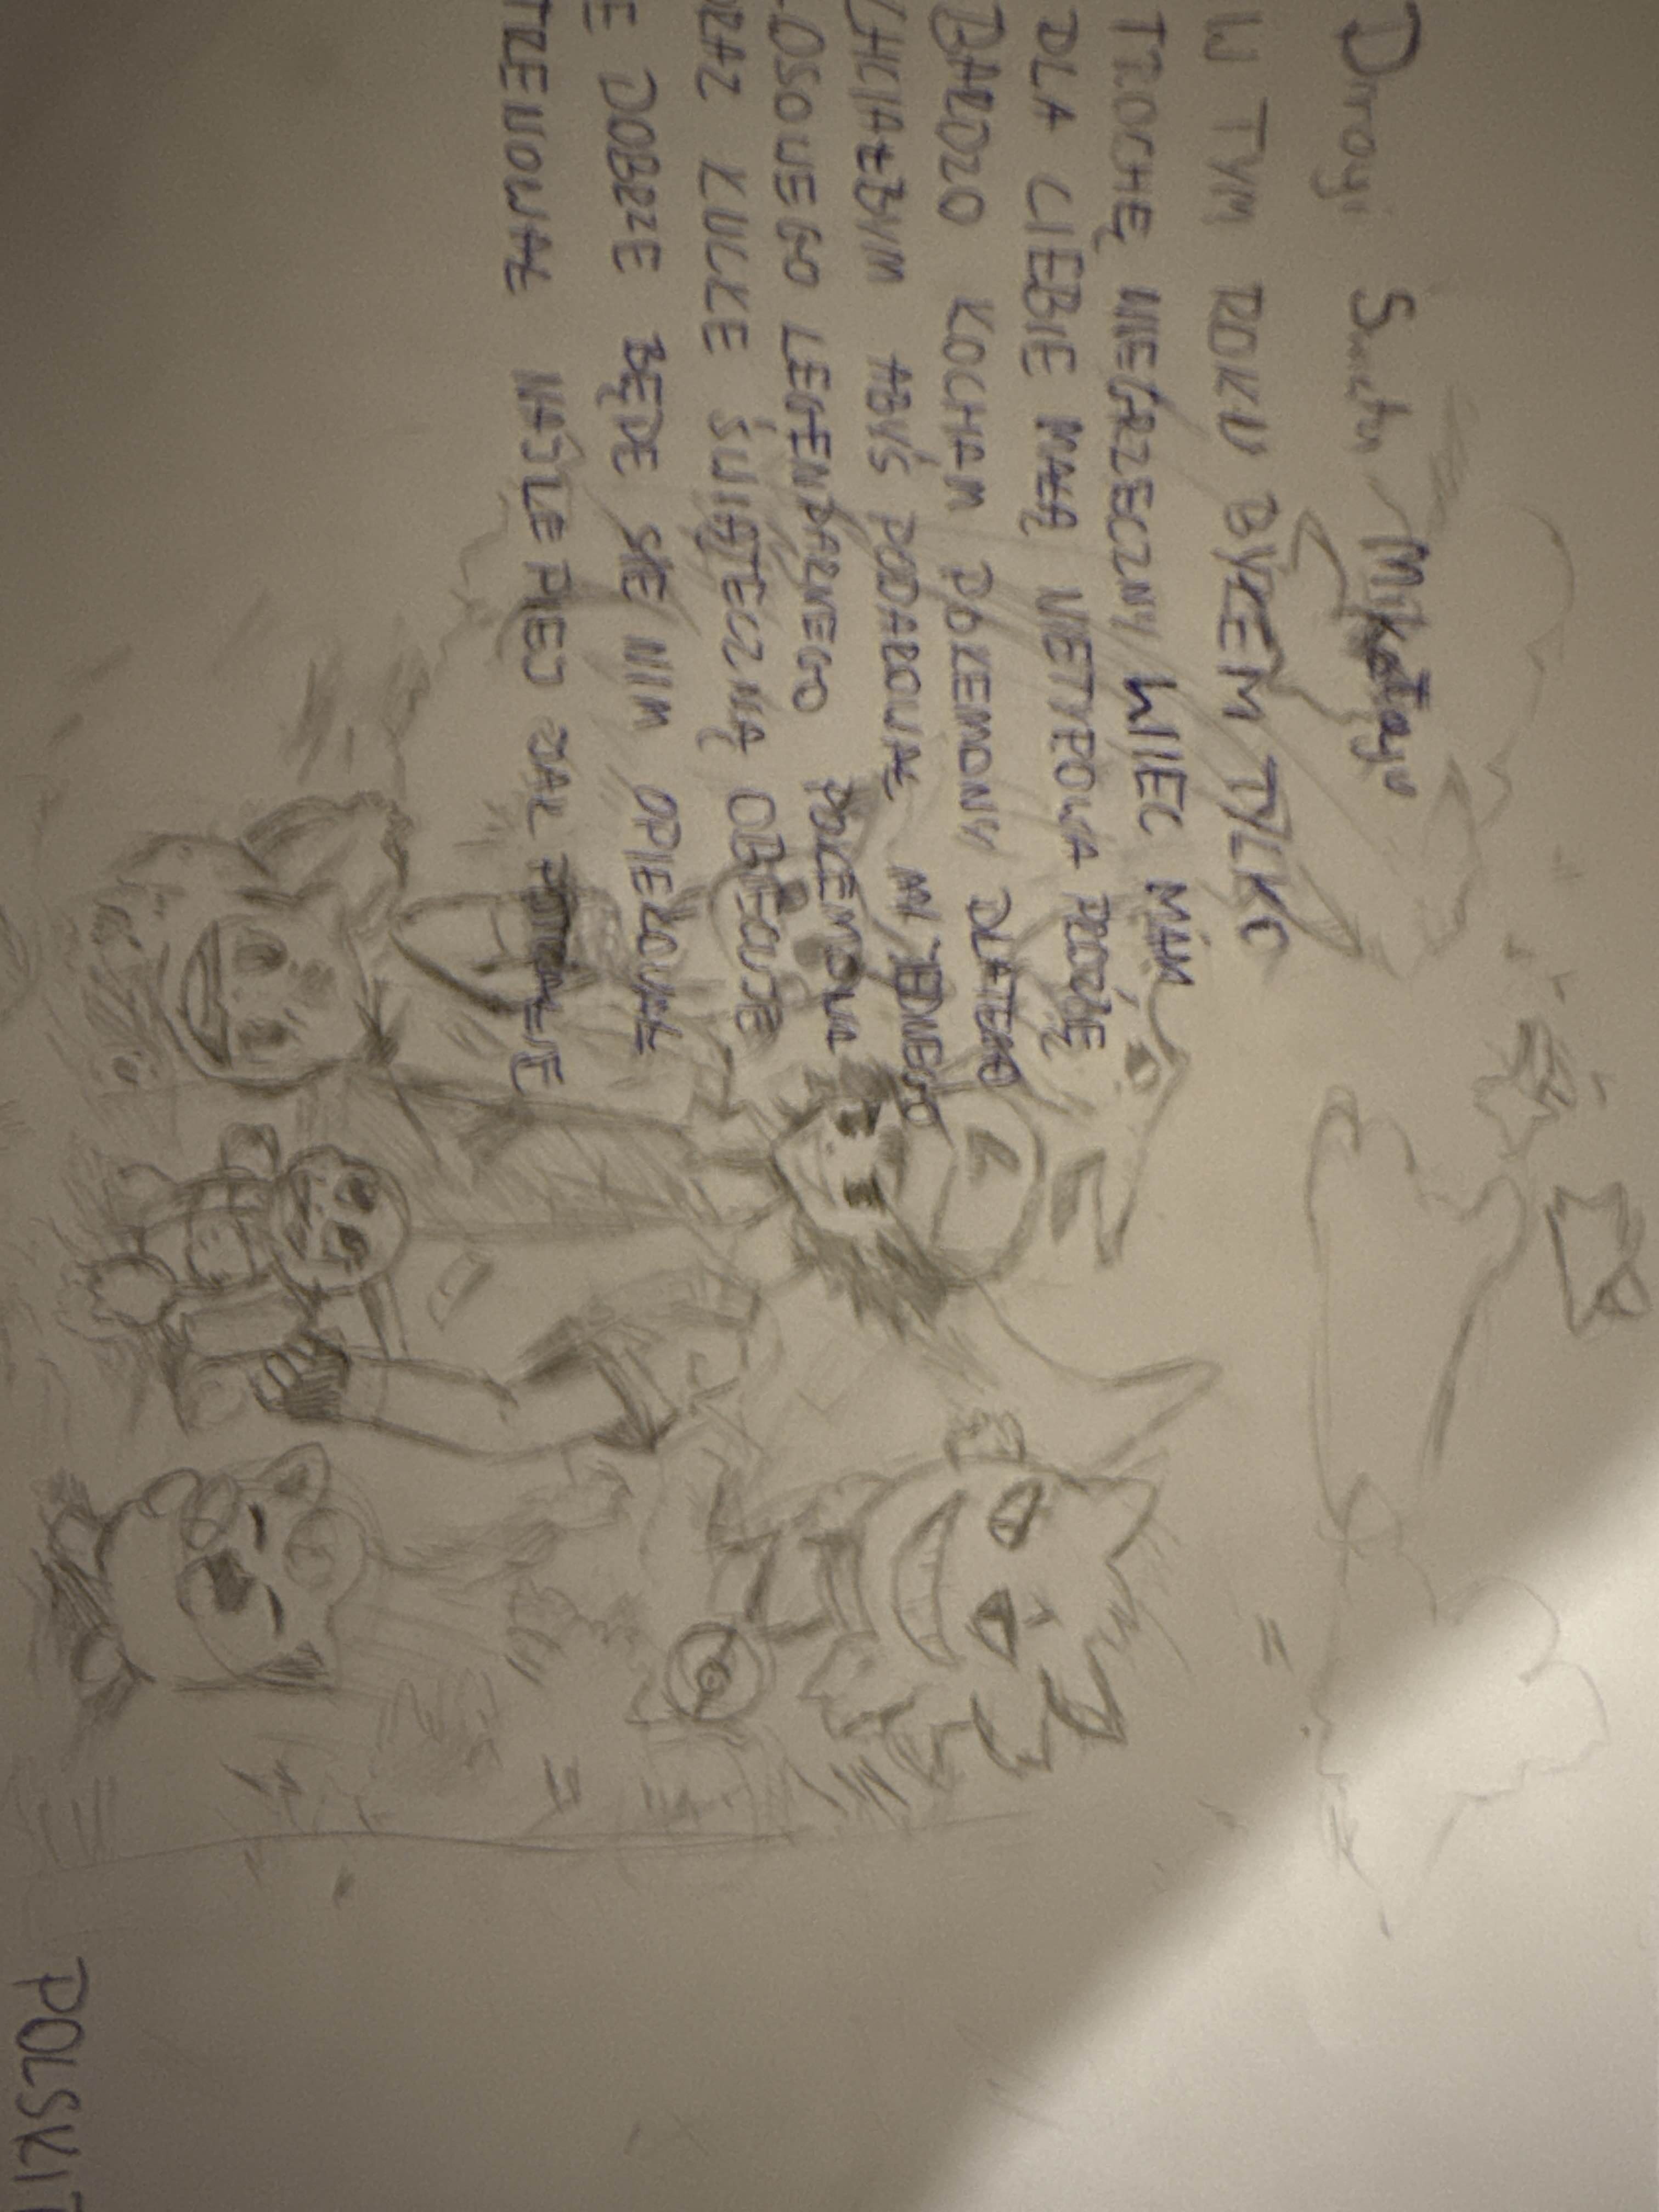 Drogi Święty Mikołaju
W TYM ROKU BYŁEM TYLKO
TROCHĘ NIEGRZECZNY WIEC MAM
DLA CIEBIE MAŁĄ NIETYPOWA PROŹBĘ
BARDZO KOCHAM POKEMONY DLATEGO
CHCIAŁBYM ABYŚ PODAROWAŁ MI JEDNEGO
LOSOWEGO LEGENDARNEGO POKEMONA
ORAZ KULKE ŚWIĄTECZNĄ OBIECUJE
ŻE DOBRZE BĘDE SIE NIM OPIEKOWAŁ
TRENOWAŁ NASTEPIEC JAK